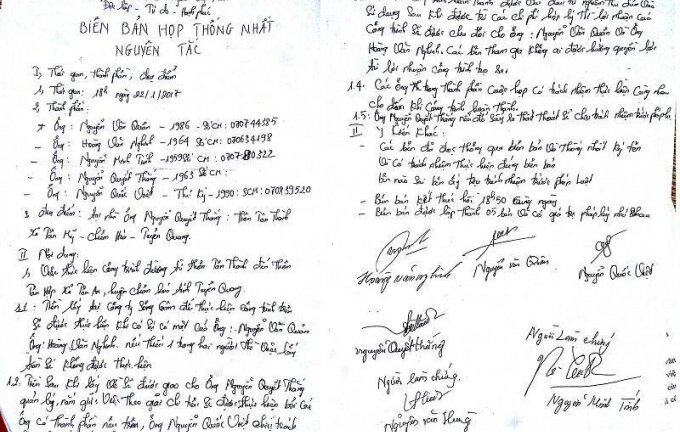 Độc lập - Tự do - Hạnh phúc
BIÊN BẢN HỌP THỐNG NHẤT
NGUYÊN TẮC
I, Thời gian, thành phần, địa điểm
1, Thời gian: 18h ngày 22/1/2017
2, Thành phần:
+ Ông: Nguyễn Văn Quân - 1986 - SCM: 070744385
- Ông: Hoàng Văn Nghinh - 1964 SCM: 070634198
- Ông: Nguyễn Minh Tính - 1959 SCM: 070780322
- Ông: Nguyễn Quyết Thắng - 1963 SCM:
- Ông: Nguyễn Quốc Việt - Thư ký - 1990: SCM: 070939520
3, Địa điểm: tại nhà Ông Nguyễn Quyết Thắng: Thôn Tân Thành
Xã Tân Mỹ - Chiêm Hóa - Tuyên Quang.
II Nội dung:
1, Việc thực hiện công trình đường từ thôn Tân Thành đến thôn
Tân Hợp Xã Tân An, huyện Chiêm hóa tỉnh Tuyên Quang.
1.1: Tiền lấy tại Công ty Sông Gâm để thực hiện công trình trên
Sẽ được thực hiện khi có sự có mặt của Ông: Nguyễn Văn Quân
Ông: Hoàng Văn Nghinh. nếu thiếu 1 trong hai người thì việc lấy
tiền sẽ không được thực hiện
1.2: Tiền sau khi lấy về sẽ được giao cho Ông Nguyễn Quyết Thắng
quản lý, nắm giữ. Việc theo giỏi chi tiền sẽ được thực hiện bởi các
Ông có thành phần nêu trên, Ông Nguyễn Quốc Việt chịu trách
Sử dụng sau khi được trừ các chi phí hợp lý thì lợi nhuận của
Công trình sẽ được chia đôi cho Ông: Nguyễn Văn Quân và Ông
Hoàng Văn Nghinh. Các bên tham gia không ai được hưởng quyền lợi
từ lợi nhuận công trình tạo ra.
1.4. Các Ông có trong thành phần cuộc họp có trách nhiệm thực hiện cùng nhau
cho đến khi công trình hoàn thành.
II Ý kiến khác:
- Các bên đã đọc thông qua biên bản và thống nhất ký tên
Và có trách nhiệm thực hiện đúng biên bản
Bên nào sai bên ấy chịu trách nhiệm trước pháp luật
- Biên bản kết thúc hồi: 18h50 cùng ngày
- Biên bản được lập thành 05 bản và có giá trị pháp lý như nhau
Hoàng văn nghinh
Nguyễn văn Quân
Nguyễn Quốc Việt
nguyễn Quyết thắng
Người làm chứng
Người làm chứng.
Nguyễn Minh Tính
Nguyễn văn Hưng